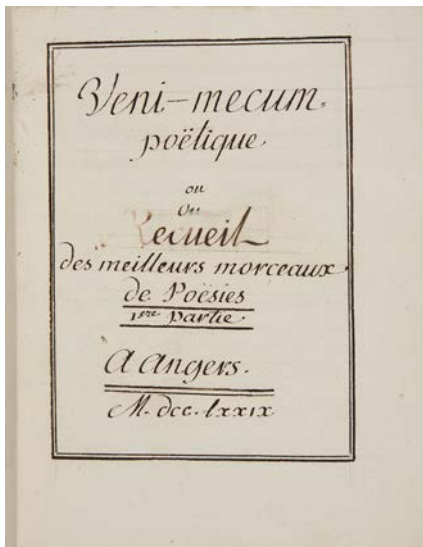 Veni-mecum.
poëtique.
ou
Ou
Recueil
des meilleurs morceaux
de Poësies
1ere Partie.
A Angers.
M. dcc. lxxix